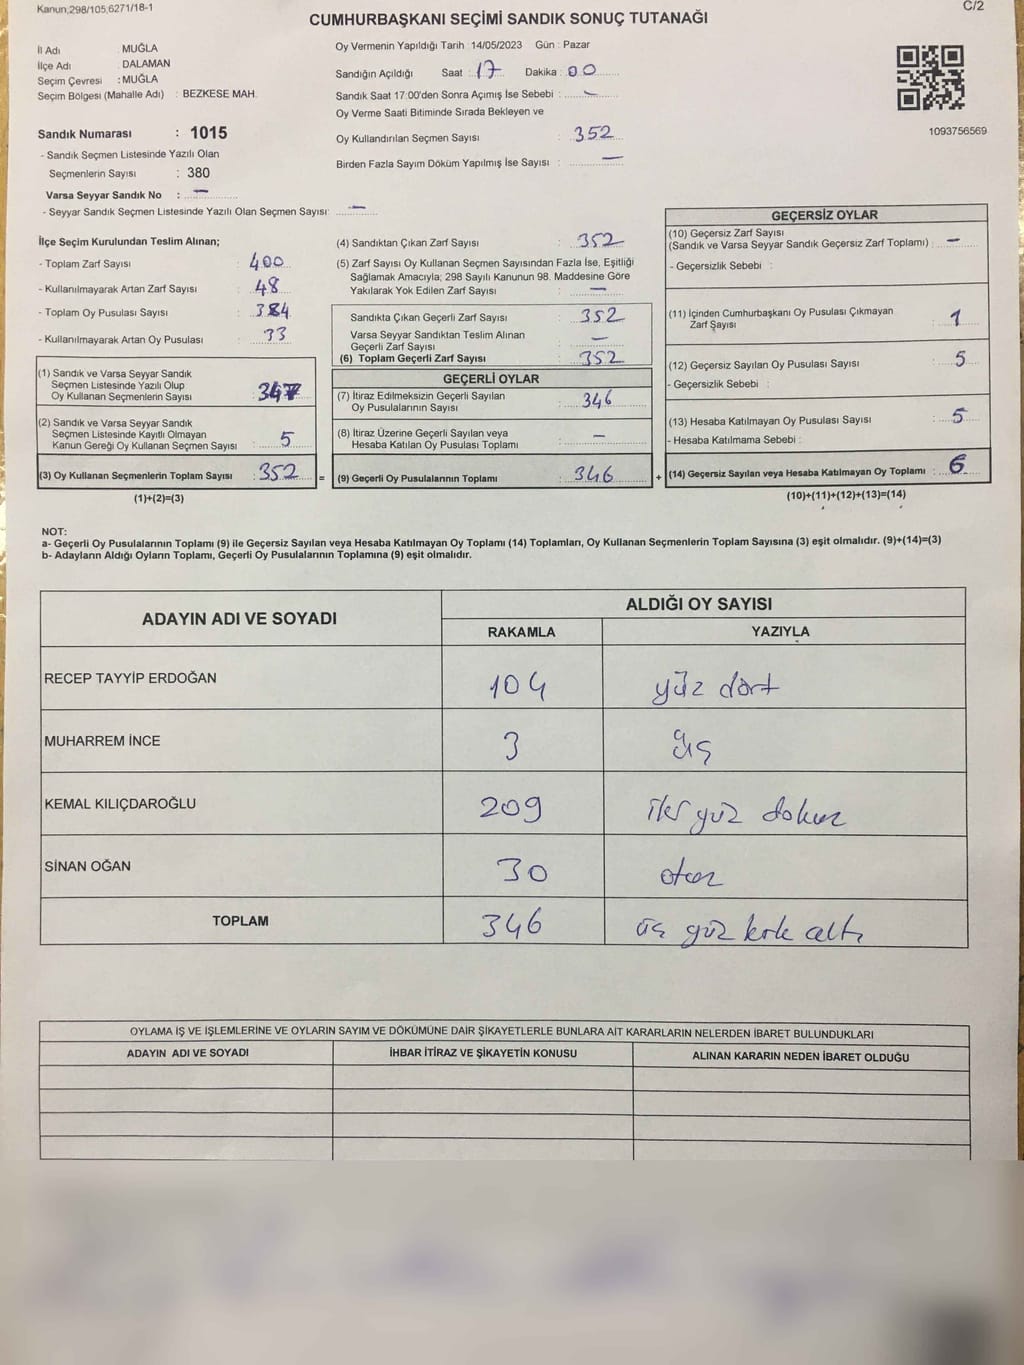 Kanun;298/105,6271/18-1
C/2
CUMHURBAŞKANI SEÇİMİ SANDIK SONUÇ TUTANAĞI
İl Adı : MUĞLA
İlçe Adı : DALAMAN
Seçim Çevresi : MUĞLA
Seçim Bölgesi (Mahalle Adı) : BEZKESE MAH.
Oy Vermenin Yapıldığı Tarih : 14/05/2023 Gün : Pazar
Sandığın Açıldığı Saat : 17 Dakika : 00
Sandık Saat 17:00'den Sonra Açımış İse Sebebi : -
Oy Verme Saati Bitiminde Sırada Bekleyen ve
Oy Kullandırılan Seçmen Sayısı : 352
Birden Fazla Sayım Döküm Yapılmış İse Sayısı : -
1093756569
Sandık Numarası : 1015
- Sandık Seçmen Listesinde Yazılı Olan
Seçmenlerin Sayısı : 380
Varsa Seyyar Sandık No : -
- Seyyar Sandık Seçmen Listesinde Yazılı Olan Seçmen Sayısı: -
İlçe Seçim Kurulundan Teslim Alınan;
- Toplam Zarf Sayısı : 400
- Kullanılmayarak Artan Zarf Sayısı : 48
- Toplam Oy Pusulası Sayısı : 384
- Kullanılmayarak Artan Oy Pusulası : 33
(1) Sandık ve Varsa Seyyar Sandık
Seçmen Listesinde Yazılı Olup
Oy Kullanan Seçmenlerin Sayısı : 347
(2) Sandık ve Varsa Seyyar Sandık
Seçmen Listesinde Kayıtlı Olmayan
Kanun Gereği Oy Kullanan Seçmen Sayısı : 5
(3) Oy Kullanan Seçmenlerin Toplam Sayısı : 352 =
(1)+(2)=(3)
(4) Sandıktan Çıkan Zarf Sayısı : 352
(5) Zarf Sayısı Oy Kullanan Seçmen Sayısından Fazla İse, Eşitliği
Sağlamak Amacıyla; 298 Sayılı Kanunun 98. Maddesine Göre
Yakılarak Yok Edilen Zarf Sayısı : -
Sandıkta Çıkan Geçerli Zarf Sayısı : 352
Varsa Seyyar Sandıktan Teslim Alınan
Geçerli Zarf Sayısı : -
(6) Toplam Geçerli Zarf Sayısı : 352
GEÇERLİ OYLAR
(7) İtiraz Edilmeksizin Geçerli Sayılan
Oy Pusulalarının Sayısı : 346
(8) İtiraz Üzerine Geçerli Sayılan veya
Hesaba Katılan Oy Pusulası Toplamı : -
(9) Geçerli Oy Pusulalarının Toplamı : 346 +
GEÇERSİZ OYLAR
(10) Geçersiz Zarf Sayısı
(Sandık ve Varsa Seyyar Sandık Geçersiz Zarf Toplamı) : -
- Geçersizlik Sebebi :
(11) İçinden Cumhurbaşkanı Oy Pusulası Çıkmayan
Zarf Sayısı : 1
(12) Geçersiz Sayılan Oy Pusulası Sayısı : 5
- Geçersizlik Sebebi :
(13) Hesaba Katılmayan Oy Pusulası Sayısı : 5
- Hesaba Katılmama Sebebi :
(14) Geçersiz Sayılan veya Hesaba Katılmayan Oy Toplamı : 6
(10)+(11)+(12)+(13)=(14)
NOT:
a- Geçerli Oy Pusulalarının Toplamı (9) ile Geçersiz Sayılan veya Hesaba Katılmayan Oy Toplamı (14) Toplamları, Oy Kullanan Seçmenlerin Toplam Sayısına (3) eşit olmalıdır. (9)+(14)=(3)
b- Adayların Aldığı Oyların Toplamı, Geçerli Oy Pusulalarının Toplamına (9) eşit olmalıdır.
ADAYIN ADI VE SOYADI
ALDIĞI OY SAYISI
RAKAMLA YAZIYLA
RECEP TAYYİP ERDOĞAN 104 yüz dört
MUHARREM İNCE 3 üç
KEMAL KILIÇDAROĞLU 209 iki yüz dokuz
SİNAN OĞAN 30 otuz
TOPLAM 346 üç yüz kırk altı
OYLAMA İŞ VE İŞLEMLERİNE VE OYLARIN SAYIM VE DÖKÜMÜNE DAİR ŞİKAYETLERLE BUNLARA AİT KARARLARIN NELERDEN İBARET BULUNDUKLARI
ADAYIN ADI VE SOYADI İHBAR İTİRAZ VE ŞİKAYETİN KONUSU ALINAN KARARIN NEDEN İBARET OLDUĞU